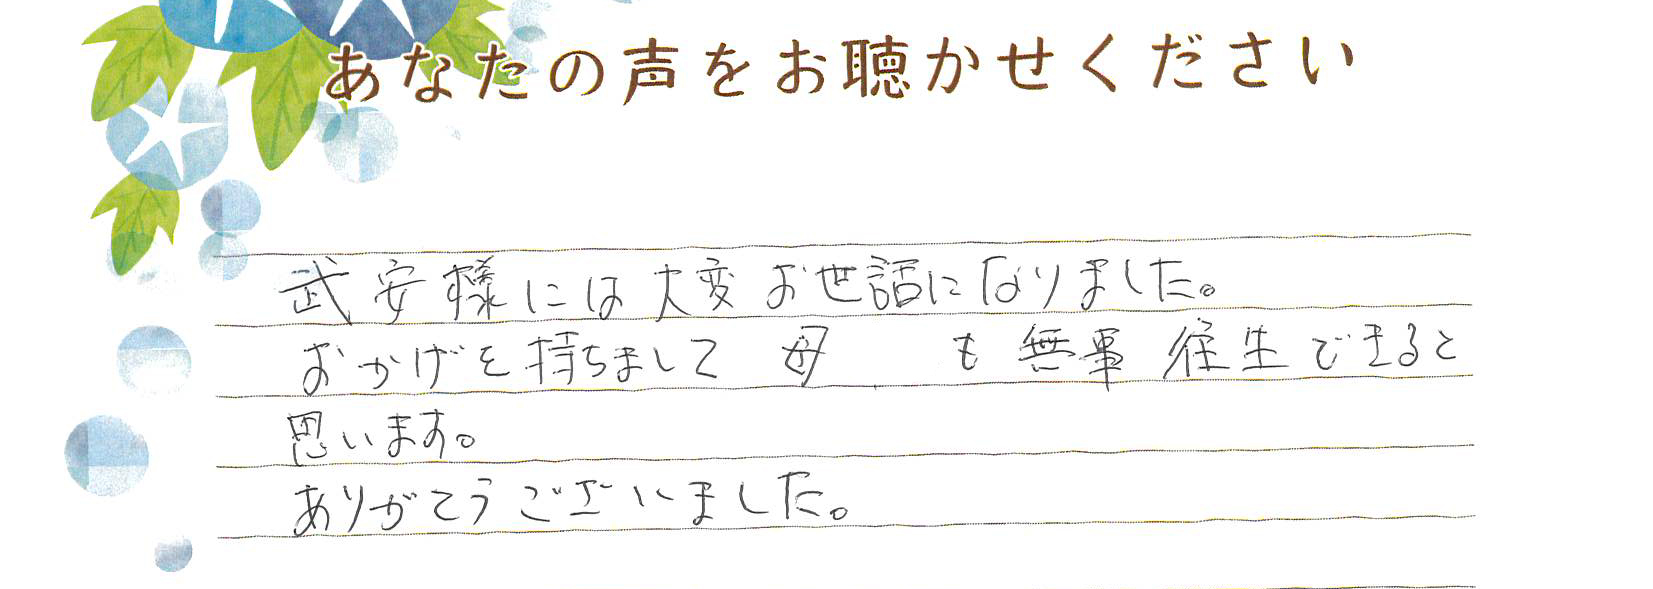 あなたの声をお聴かせください
武安様には大変お世話になりました。
おかげを持ちまして 母 も 無事 往生できると
思います。
ありがとうございました。